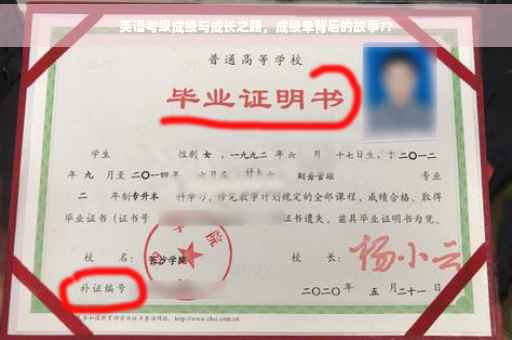 英语考级成绩与成长之路，成绩单背后的故事??
普通高等学校
毕业证明书
学生 性别 女，一九九二 年 六 月 十七日生，于 二〇一二
年 九 月至 二〇一四 年 六月在 财务管理 专业
二 年制 专升本 科学习，修完教学计划规定的全部课程，成绩合格，取得
毕业证书（证书号 证书遗失，兹具毕业证明书为凭。
校 名： 长沙学院 校 长： 杨小云
补证编号 二〇二〇年 五 月二十一日
http://www.chsi.com.cn